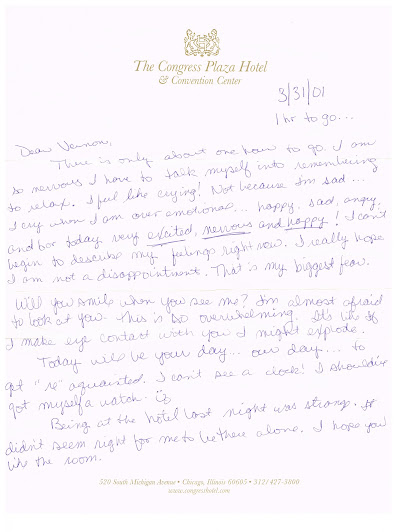 The Congress Plaza Hotel
& Convention Center
3/31/01
1 hr to go...
Dear Vernon,
There is only about one hour to go. I am
so nervous I have to talk myself into remembering
to relax. I feel like crying! Not because I'm sad...
I cry when I am over emotional... happy, sad, angry,
and for today very excited, nervous and happy! I can't
begin to describe my feelings right now. I really hope
I am not a disappointment. That is my biggest fear.
Will you smile when you see me? I'm almost afraid
to look at you - this is so overwhelming. It's like if
I make eye contact with you I might explode.
Today will be your day... our day... to
get "re" aquainted. I can't see a clock! I should've
got myself a watch.
Being at the hotel last night was strange. It
didn't seem right for me to be there alone. I hope you
like the room.
520 South Michigan Avenue • Chicago, Illinois 60605 • 312/427-3800
www.congresshotel.com